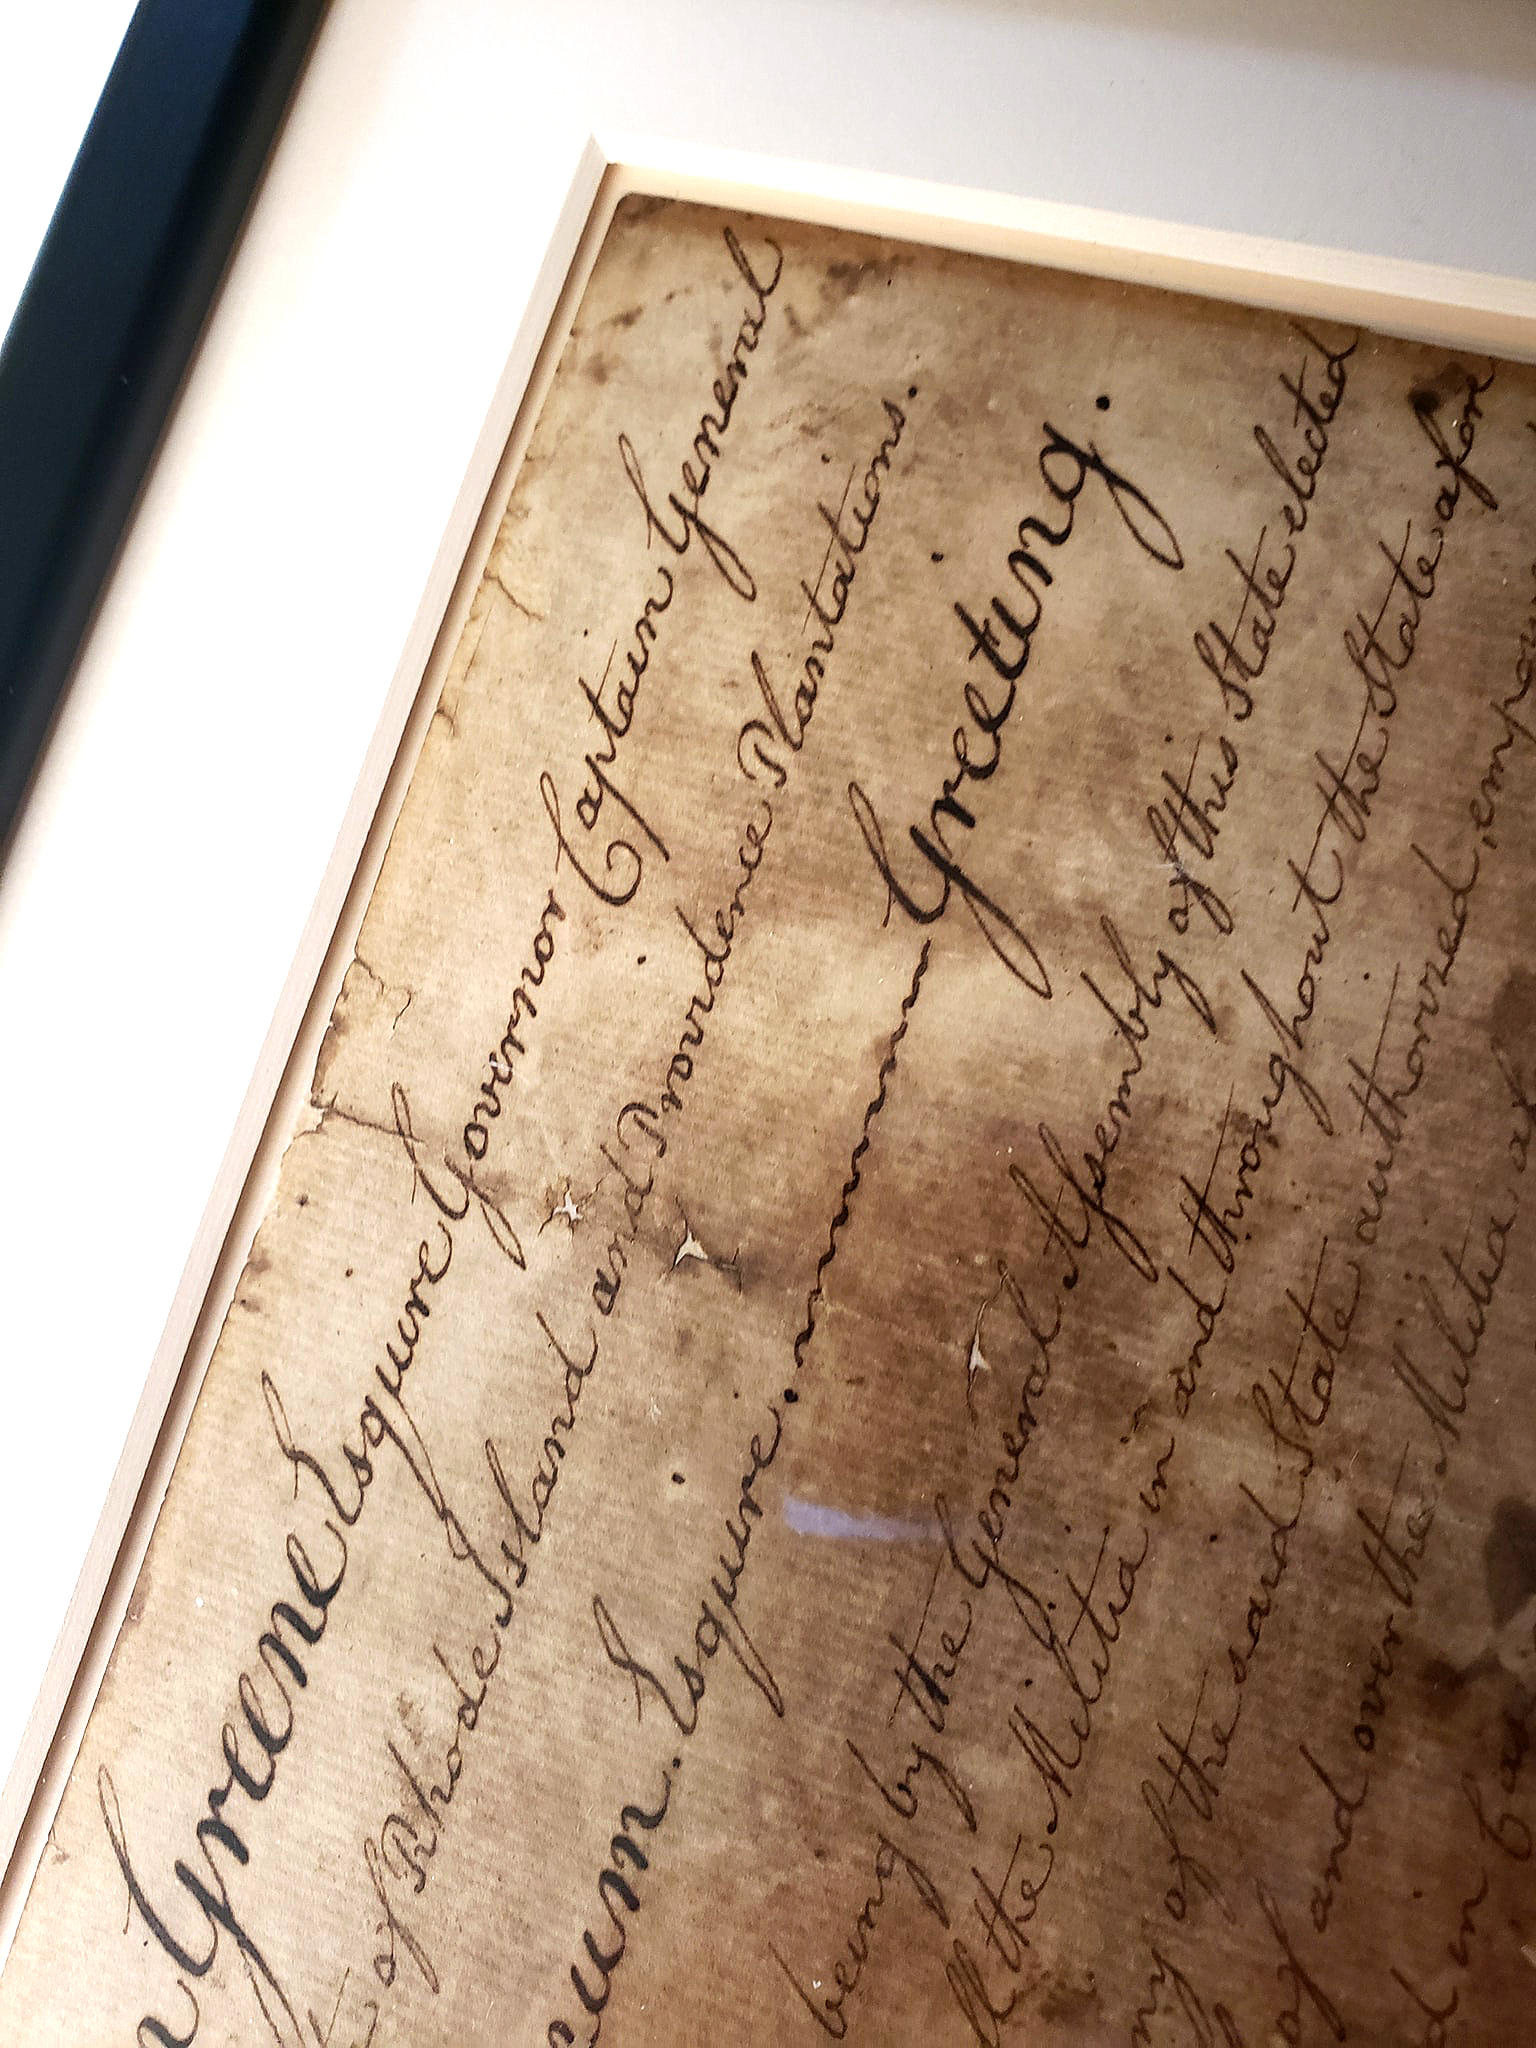 Greene Esquire Governor Captain General
of Rhode Island and Providence Plantations.
Esquire. Greeting.
being by the General Assembly of this State elected
the Militia in and throughout the State afore
of the said State authorized, empow
of and over the Militia
in